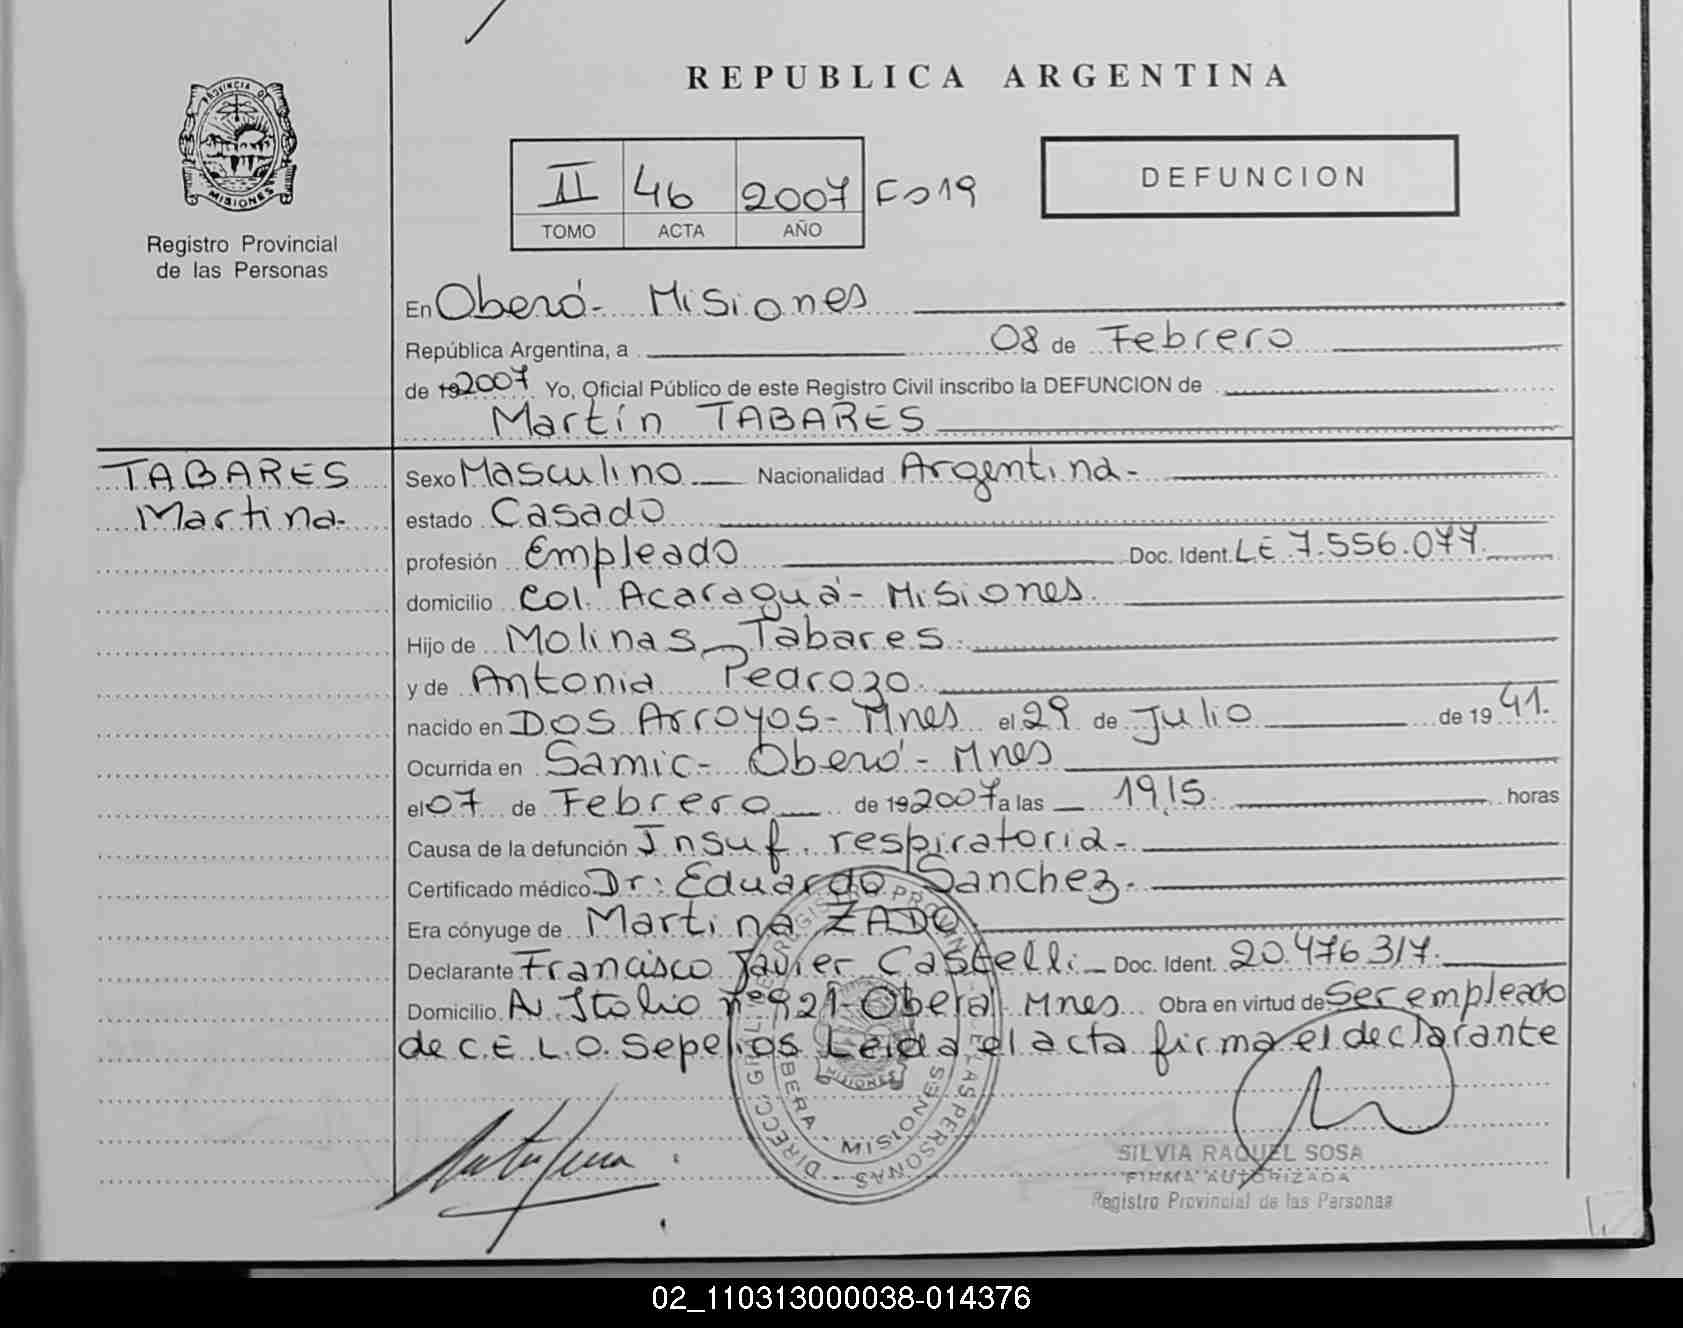 REPUBLICA ARGENTINA
PROVINCIA DE
MISIONES
Registro Provincial
de las Personas
II 46 2007 Fo 19
TOMO ACTA AÑO
DEFUNCION
En Oberá - Misiones
República Argentina, a 08 de Febrero
de 192007 Yo, Oficial Público de este Registro Civil inscribo la DEFUNCION de
Martín TABARES
TABARES
Martina-
Sexo Masculino Nacionalidad Argentina-
estado Casado
profesión Empleado Doc. Ident. LE 7.556.077
domicilio Col. Acaraguá - Misiones.
Hijo de Molinas Tabares
y de Antonia Pedrozo
nacido en DOS Arroyos - Mnes el 29 de Julio de 1941.
Ocurrida en Samic - Oberá - Mnes
el 07 de Febrero de 192007 a las 19,15 horas
Causa de la defunción Insuf. respiratoria-
Certificado médico Dr: Eduardo Sanchez-
Era cónyuge de Martina ZADO
Declarante Francisco Javier Castelli Doc. Ident. 20.476.317.
Domicilio Av. Italia nº 921 - Oberá Mnes Obra en virtud de Ser empleado
de C.E.L.O. Sepelios Leida el acta firma el declarante
DIRECC. GRAL. DE REGISTRO PROVINCIAL DE LAS PERSONAS
MISIONES
OBERA - MISIONES
SILVIA RAQUEL SOSA
FIRMA AUTORIZADA
Registro Provincial de las Personas
02_110313000038-014376